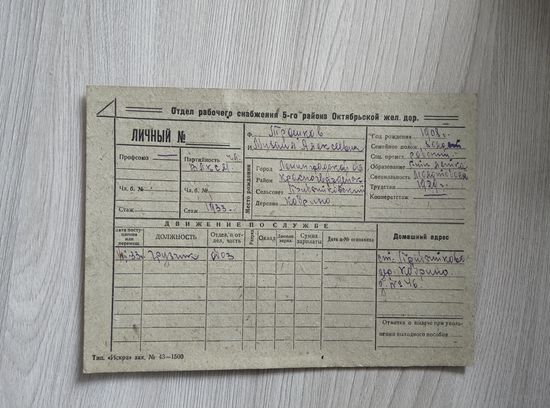 Отдел рабочего снабжения 5-го района Октябрьской жел. дор.
ЛИЧНЫЙ №
Профсоюз —
Чл. б. №
Стаж
Партийность чл.
ВЛКСМ
Чл. б. №
Стаж 1933
Ф. Трошков
И. Михаил Алексеевич
Место рождения
Город Ленинградской об
Район Красногвардейск
Сельсовет
Деревня Кобрино
Год рождения 1908 г.
Семейное полож. холост
Соц. происх. рабочий
Образование
Специальность
Трудстаж 1926 г.
Кооперстаж
ДВИЖЕНИЕ ПО СЛУЖБЕ
Дата поступления или перемещ.
ДОЛЖНОСТЬ
Отдел, п-отдел, часть
Разряд
Оклад
Сумма зарплаты
Дата и № основания
33 грузчик обоз
Домашний адрес
ст.
др. Кобрино
д. № 46
Отметка о выдаче при увольнении выходного пособия.
Тип. «Искра» зак. № 43—1500